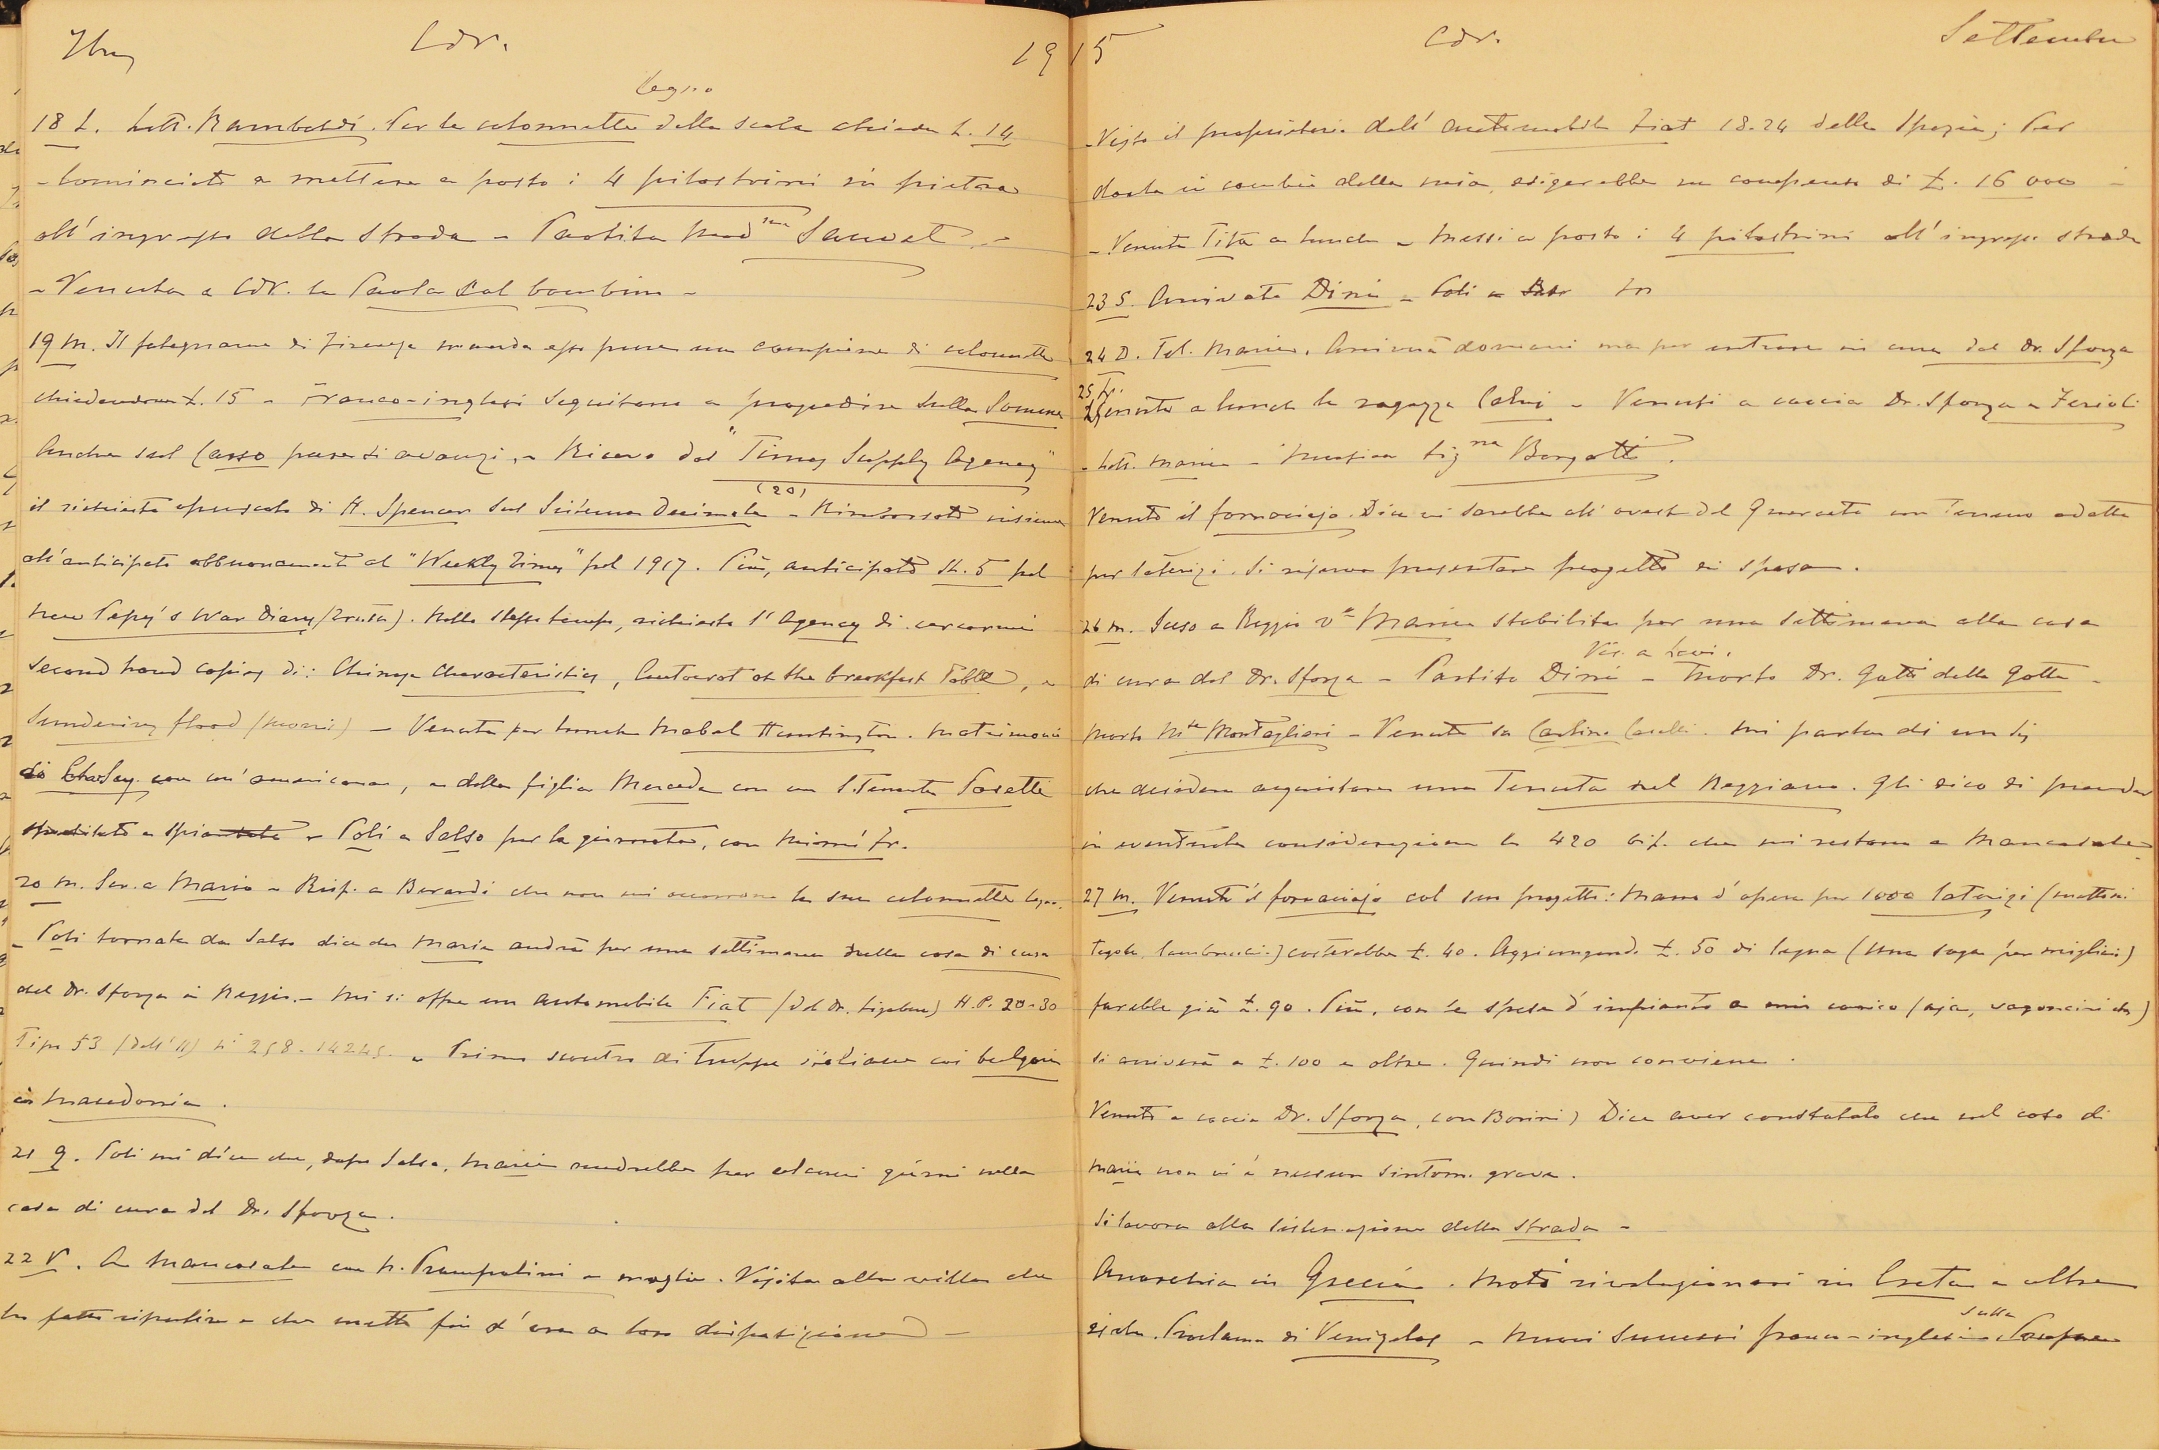 7bre
CdV.
19
legno
18 L. Lett. Rambaldi. Per le colonnette della scala chiede L. 14
- Cominciato a mettere a posto i 4 pilastrini di pietra
all'ingresso della strada - Partita Mad.me Sauvet -
- Venuta a CdV. la Paola col bambino -
19 M. Il falegname di Firenze manda esso pure un campione di colonnette
chiedendone L. 15 - Franco-inglesi seguitano a progredire sulla Somme
Anche sul Carso pure si avanza - Ricevo dal "Times Supply Agency"
(20)
il richiesto opuscolo di H. Spencer sul Sistema Decimale - Rimborsato insieme
all'anticipato abbuonamento al "Weekly Times" pel 1917. Più, anticipato Sh. 5 pel
New Pepys's War Diary (Truth). Nello stesso tempo, richiesto l'Agency di cercarmi
second hand copies di: Chinese Characteristics, Autocrat at the breakfast Table, e
Sundering flood (Morris) - Venuta per lunch Mabel Huntington. Matrimonio
di con un'americana, e della figlia Mercede con un S. Tenente
- Poli a Salso per la giornata, con Mimì fr.
20 M. Scr. a Maria - Risp. a Berardi che non mi occorrono le sue colonnette legno.
- Poli tornata da Salso dice che Maria andrà per una settimana nella casa di cura
del Dr. Sforza a Reggio. - Mi si offre un automobile Fiat (del Dr. Ligabue) H.P. 20-30
Tipo 53 (dell'11) N° 258-14245. - Primo scontro di truppe italiane coi bulgari
in Macedonia.
21 G. Poli mi dice che, dopo Salso, Maria andrebbe per alcuni giorni nella
casa di cura del Dr. Sforza.
22 V. A Mancasale con N. Prampolini e moglie. Visita alla villa che
ho fatto ripulire e che metto fin d'ora a loro disposizione -
15
CdV.
Settembre
- Visto il proprietario dell'automobile Fiat 18.24 della Spezia; Per
darla in cambio della mia, esigerebbe un compenso di L. 16 000 -
- Venuta Tita a lunch - Messi a posto i 4 pilastrini all'ingresso strada
23 S. Arrivata Dini - Poli a
24 D. Tel. Maria. Arriverà domani ma per entrare in cura dal Dr. Sforza
25 L. Venuta a lunch la ragazza Calvi - Venuti a caccia Dr. Sforza e Ferioli
- Lett. Maria - Musica Sig.na Borgatti.
Venuto il fornaciajo. Dice vi sarebbe all'ovest del Querceto un terreno adatto
per laterizi. Si riserva presentare progetto di spesa.
26 M. Sceso a Reggio Va Maria stabilita per una settimana alla casa
Vis. a Levi.
di cura del Dr. Sforza - Partita Dini - Morto Dr. Gatti della Gatta -
Morto Mse Montagliani - Venuto da Carlino Caselli. Mi parla di un Sig
che desidera acquistare una Tenuta nel Reggiano. Gli dico di prender
in eventuale considerazione le 420 bif. che mi restano a Mancasale
27 M. Venuto il fornaciajo col suo progetto: Mano d'opera per 1000 laterizi (mattoni
tegole, ) costerebbe L. 40. Aggiungendo L. 50 di legna (una soga per migliaio)
farebbe già L. 90. Più, con la spesa d'impianto a mio carico (aja, vagoncini etc)
si arriverà a L. 100 e oltre. Quindi non conviene.
Venuto a caccia Dr. Sforza, con Borini) Dice aver constatato che nel caso di
Maria non vi è nessun sintomo grave.
Si lavora alla sistemazione della strada -
Anarchia in Grecia. Moti rivoluzionari in Creta e altre
sulla
isole. Proclama di Venizelos - Nuovi successi franco-inglesi